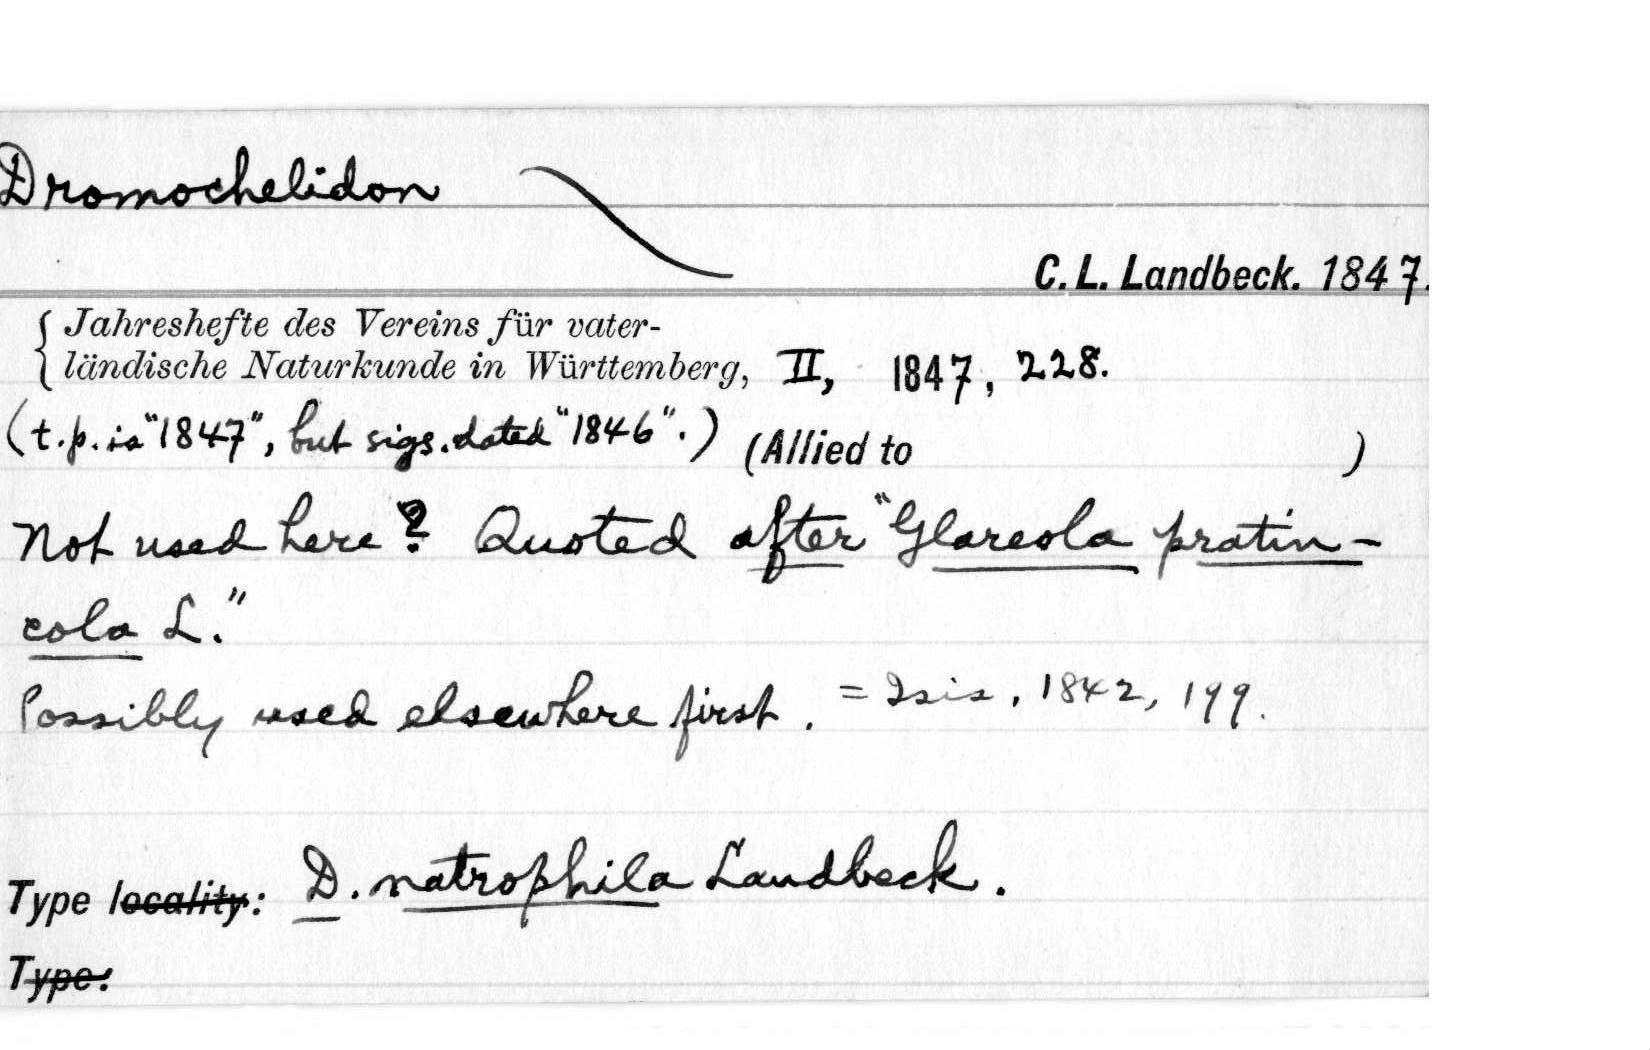 Dromochelidon
C. L. Landbeck. 1847.
Jahreshefte des Vereins für vater-
ländische Naturkunde in Württemberg, II, 1847, 228.
(t.p. is "1847", but sigs. dated "1846".) (Allied to )
Not used here? Quoted after "Glareola pratin-
cola L."
Possibly used elsewhere first. = Isis, 1842, 199.
Type locality: D. natrophila Landbeck.
Type: